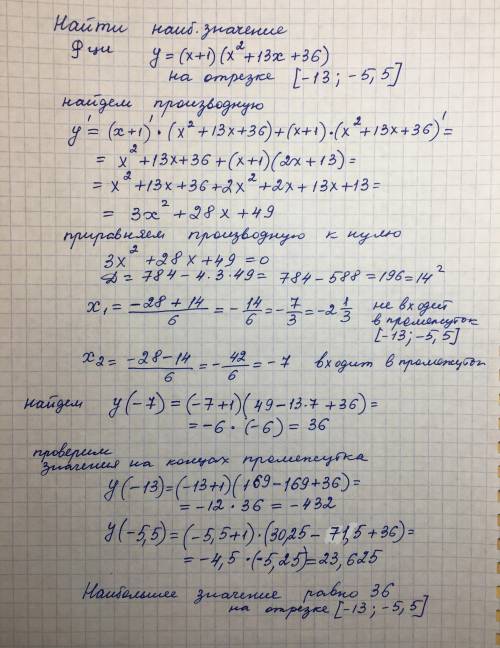 Найти наиб. значение
Ф ции y = (x+1)(x²+13x+36)
на отрезке [-13; -5,5]
найдем производную
y' = (x+1)' · (x²+13x+36) + (x+1) · (x²+13x+36)' =
= x²+13x+36 + (x+1)(2x+13) =
= x²+13x+36+2x²+2x+13x+13 =
= 3x²+28x+49
приравняем производную к нулю
3x²+28x+49 = 0
D = 784 - 4·3·49 = 784 - 588 = 196 = 14²
x₁ = (-28+14)/6 = -14/6 = -7/3 = -2 1/3 не входит
в промежуток
[-13; -5,5]
x₂ = (-28-14)/6 = -42/6 = -7 входит в промежуток
найдем y(-7) = (-7+1)(49-13·7+36) =
= -6 · (-6) = 36
проверим
значения на концах промежутка
y(-13) = (-13+1)(169-169+36) =
= -12 · 36 = -432
y(-5,5) = (-5,5+1) · (30,25 - 71,5+36) =
= -4,5 · (-5,25) = 23,625
Наибольшее значение равно 36
на отрезке [-13; -5,5]